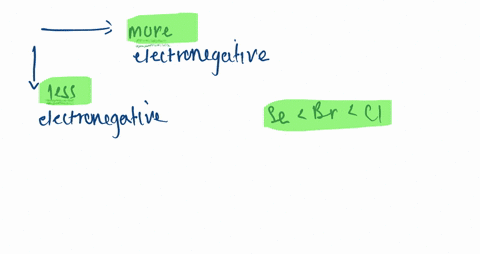 more
electronegative
less
electronegative
Se < Br < Cl